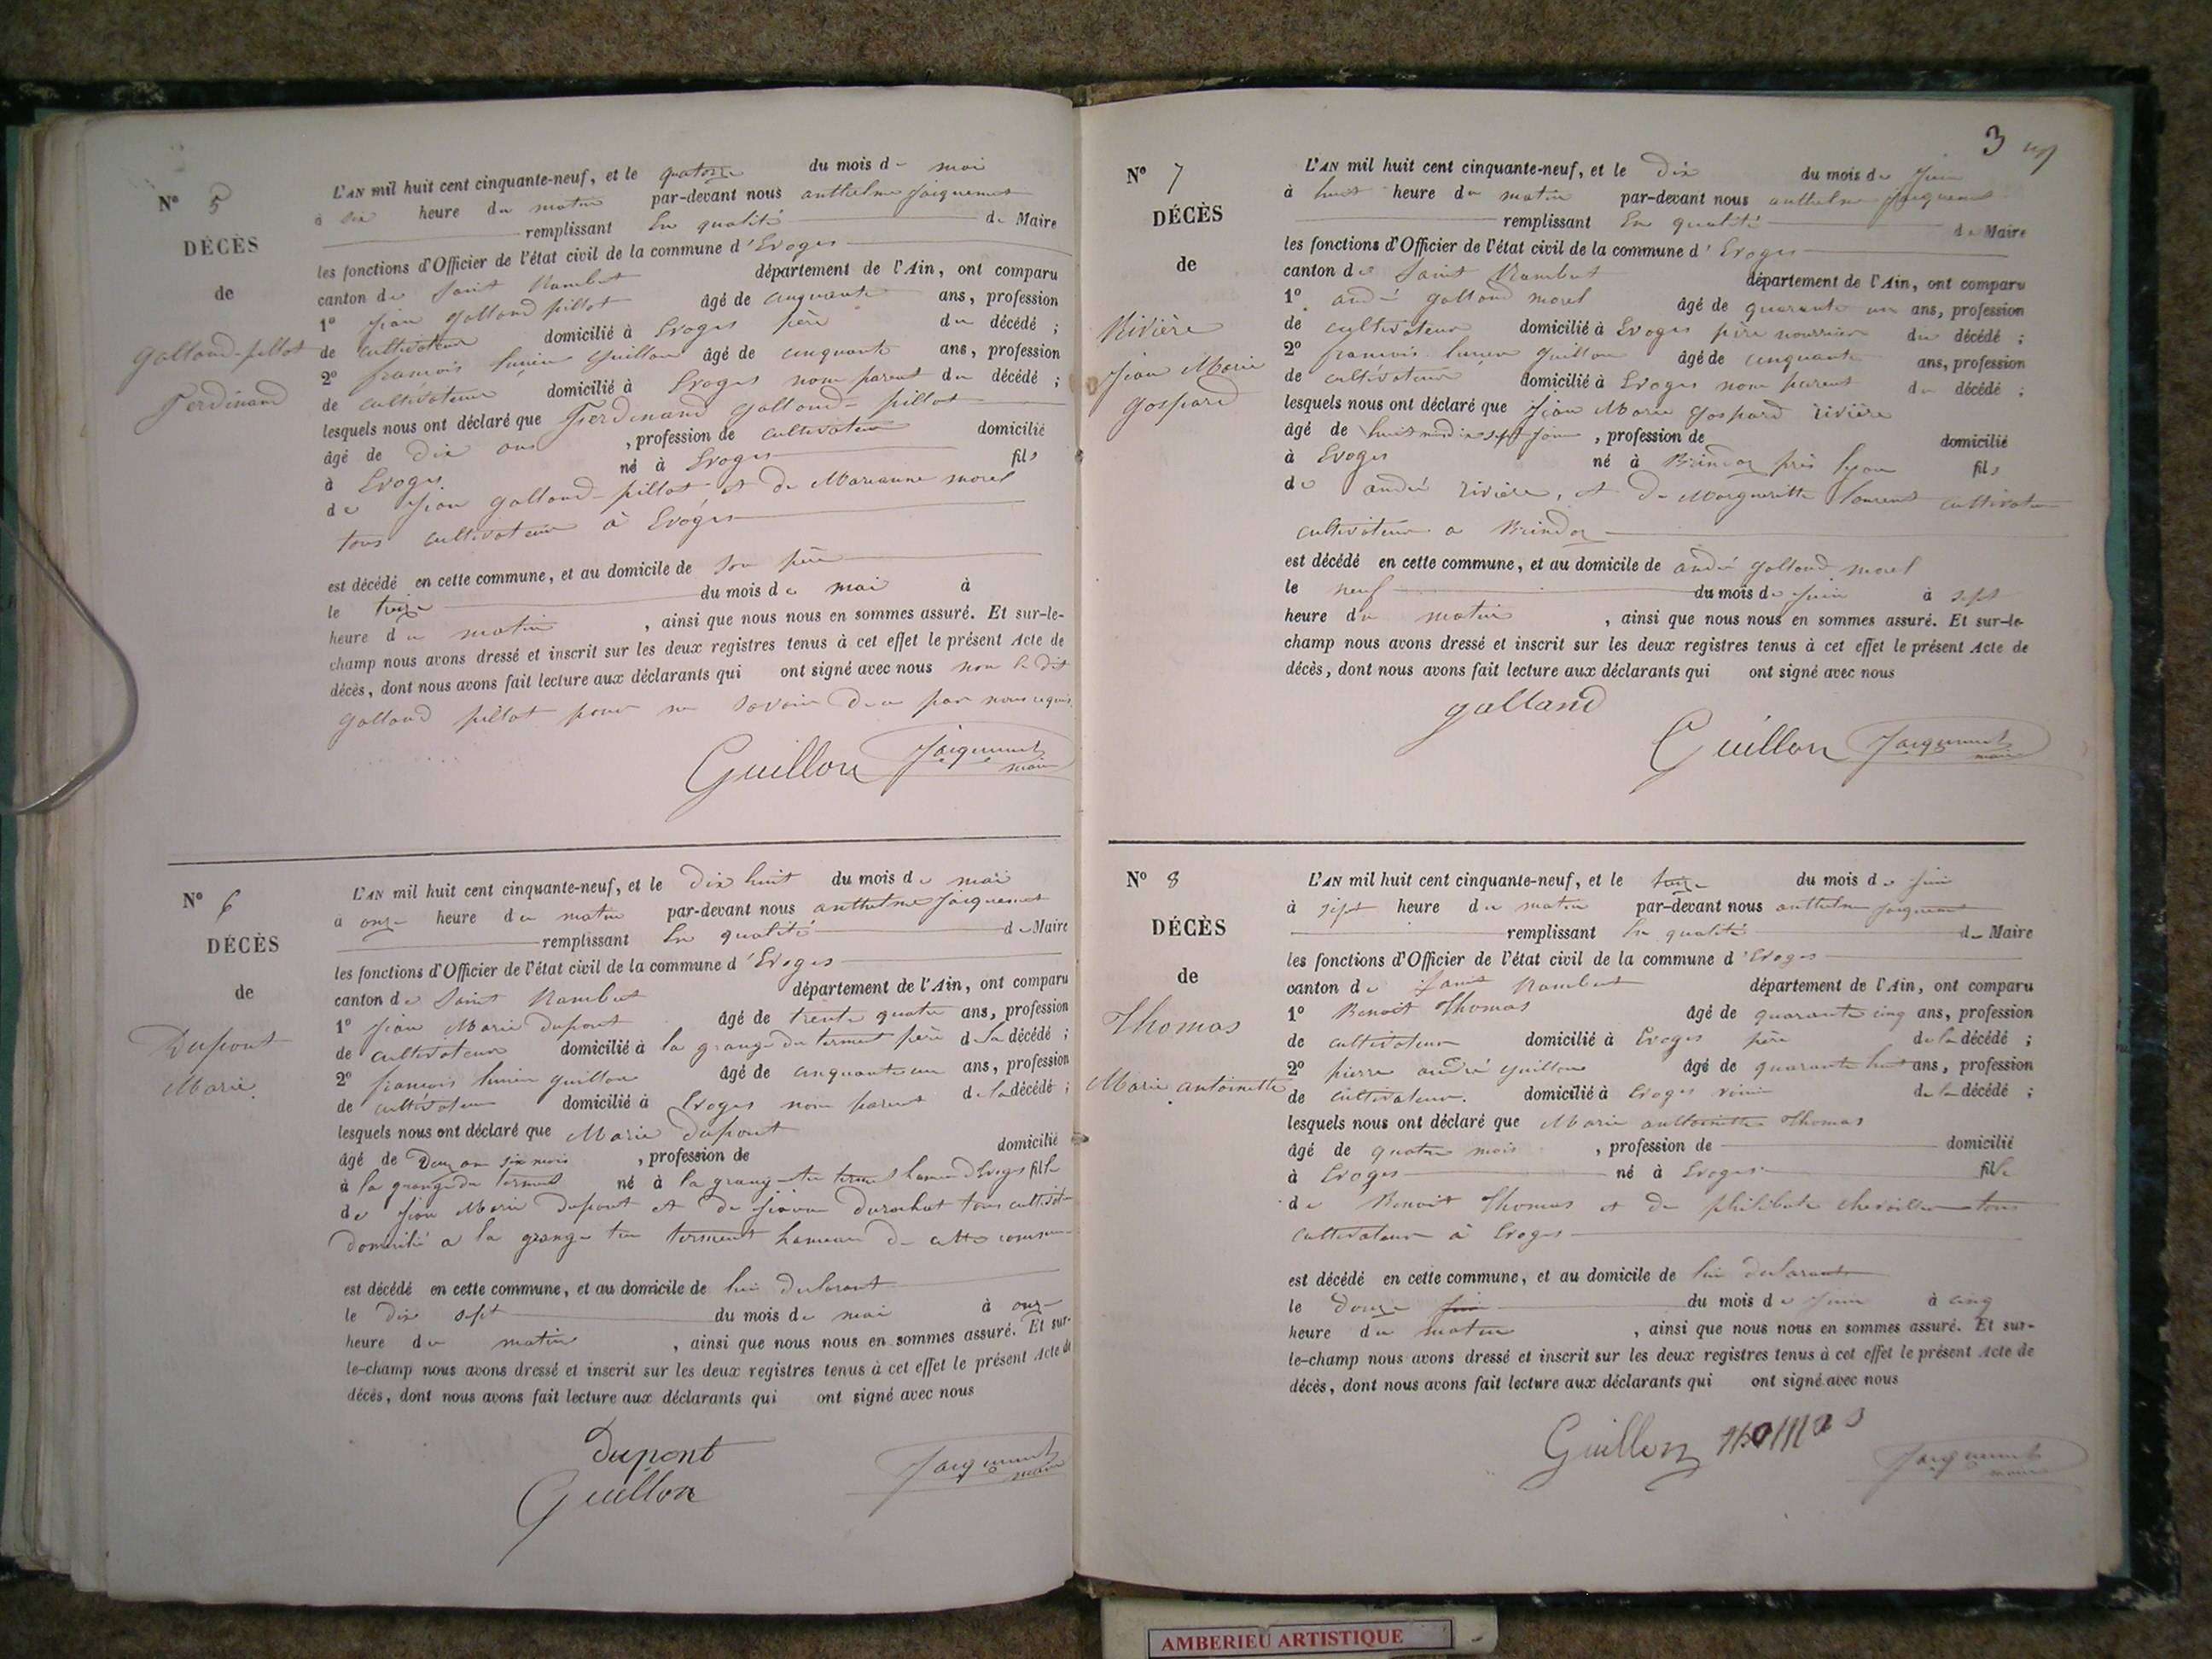 N° 5
DÉCÈS
de
Galland-pillot
Ferdinand
L'AN mil huit cent cinquante-neuf, et le quatorze du mois de mai
à six heure du matin par-devant nous anthelme Jacquemet
remplissant En qualité de Maire
les fonctions d'Officier de l'état civil de la commune d'Evoges
canton de Saint Rambert département de l'Ain, ont comparu
1° Jean Galland pillot âgé de cinquante ans, profession
de cultivateur domicilié à Evoges père du décédé ;
2° francois lucien Guillon âgé de cinquante ans, profession
de cultivateur domicilié à Evoges non parent du décédé ;
lesquels nous ont déclaré que Ferdinand Galland-pillot
âgé de dix ans , profession de cultivateur domicilié
à Evoges né à Evoges fils
de Jean Galland-pillot, et de Marianne morel
tous cultivateur à Evoges
est décédé en cette commune, et au domicile de son père
le treize du mois de mai à
heure du matin , ainsi que nous nous en sommes assuré. Et sur-le-
champ nous avons dressé et inscrit sur les deux registres tenus à cet effet le présent Acte de
décès, dont nous avons fait lecture aux déclarants qui ont signé avec nous non le dit
Galland pillot pour ne savoir de ce par nous requis
Guillon Jacquemet maire
N° 6
DÉCÈS
de
Dupont
Marie
L'AN mil huit cent cinquante-neuf, et le dix huit du mois de mai
à onze heure du matin par-devant nous anthelme Jacquemet
remplissant En qualité de Maire
les fonctions d'Officier de l'état civil de la commune d'Evoges
canton de Saint Rambert département de l'Ain, ont comparu
1° Jean Marie Dupont âgé de trente quatre ans, profession
de cultivateur domicilié à la grange du terment père de la décédé ;
2° francois lucien Guillon âgé de cinquante un ans, profession
de cultivateur domicilié à Evoges non parent de la décédé ;
lesquels nous ont déclaré que Marie Dupont
âgé de Deuz an six mois , profession de domicilié
à la grange du terment né à la grange du terment hameau d'Evoges fille
de Jean Marie Dupont et de tous cultivat
Domicilié a la grange terment hameau de cette commune
est décédé en cette commune, et au domicile de lui declarant
le dix sept du mois de mai à onze
heure du matin , ainsi que nous nous en sommes assuré. Et sur-
le-champ nous avons dressé et inscrit sur les deux registres tenus à cet effet le présent Acte de
décès, dont nous avons fait lecture aux déclarants qui ont signé avec nous
Dupont
Guillon Jacquemet maire
3
N° 7
DÉCÈS
de
Rivière
Jean Marie
Gaspard
L'AN mil huit cent cinquante-neuf, et le Dix du mois de Juin
à huit heure du matin par-devant nous anthelme Jacquemet
remplissant En qualité de Maire
les fonctions d'Officier de l'état civil de la commune d'Evoges
canton de Saint Rambert département de l'Ain, ont comparu
1° andré Galland morel âgé de quarante un ans, profession
de cultivateur domicilié à Evoges père nourricier du décédé ;
2° francois lucien Guillon âgé de cinquante ans, profession
de cultivateur domicilié à Evoges non parent du décédé ;
lesquels nous ont déclaré que Jean Marie Gaspard rivière
âgé de huit mois dix sept jour , profession de domicilié
à Evoges né à Brindaz près lyon fils
de andré rivière, et de Margueritte laurent cultivateur
cultivateur a Brindaz
est décédé en cette commune, et au domicile de andré Galland morel
le neuf du mois de Juin à sept
heure du matin , ainsi que nous nous en sommes assuré. Et sur-le-
champ nous avons dressé et inscrit sur les deux registres tenus à cet effet le présent Acte de
décès, dont nous avons fait lecture aux déclarants qui ont signé avec nous
galland
Guillon Jacquemet maire
N° 8
DÉCÈS
de
Thomas
Marie antoinette
L'AN mil huit cent cinquante-neuf, et le treize du mois de Juin
à sept heure du matin par-devant nous anthelme Jacquemet
remplissant En qualité de Maire
les fonctions d'Officier de l'état civil de la commune d'Evoges
canton de Saint Rambert département de l'Ain, ont comparu
1° Benoit Thomas âgé de quarante cinq ans, profession
de cultivateur domicilié à Evoges père de la décédé ;
2° pierre andré Guillon âgé de quarante huit ans, profession
de cultivateur. domicilié à Evoges voisin de la décédé ;
lesquels nous ont déclaré que Marie anttoinette Thomas
âgé de quatre mois , profession de domicilié
à Evoges né à Evoges fille
de Benoit Thomas et de philiberte tous
cultivateur à Evoges
est décédé en cette commune, et au domicile de lui declarant
le douze juin du mois de Juin à cinq
heure du matin , ainsi que nous nous en sommes assuré. Et sur-
le-champ nous avons dressé et inscrit sur les deux registres tenus à cet effet le présent Acte de
décès, dont nous avons fait lecture aux déclarants qui ont signé avec nous
Guillon thomas
Jacquemet maire
AMBERIEU ARTISTIQUE